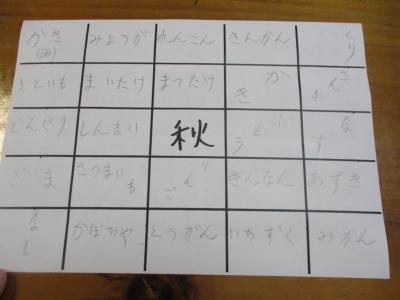 かき
みょうが
れんこん
きんかん
くり
さといも
まいたけ
まつたけ
かき
さんま
どんぐり
しんまい
秋
ぶどう
なす
ごま
さつまいも
りんご
ぎんなん
あずき
なし
かぼちゃ
とうがん
いちずく
みかん